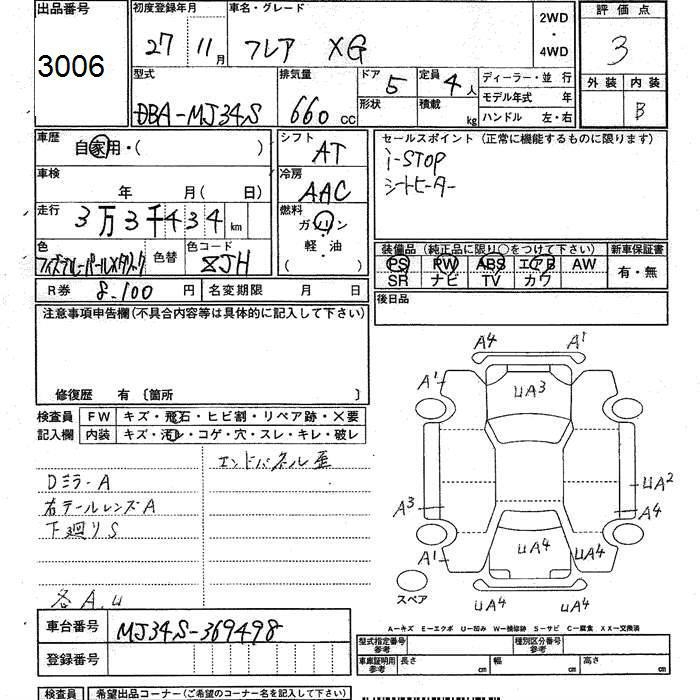 出品番号
3006
初度登録年月
27 11月
車名・グレード
フレア XG
2WD
・
4WD
評価点
3
外装 内装
B
型式
DBA-MJ34S
排気量
660 cc
ドア 5
形状
定員 4人
積載 kg
ディーラー・並行
モデル年式 年
ハンドル 左・右
車歴
自家用・( )
車検
年 月( 日)
走行
3万3千434 km
色
色替
色コード
ZJH
シフト
AT
冷房
AAC
燃料
ガソリン
・
軽・油
( )
セールスポイント (正常に機能するものに限ります)
i-STOP
シートヒーター
装備品 (純正品に限り○をつけて下さい)
PS PW ABS エアB AW
SR ナビ TV カワ
新車保証書
有・無
R券 8,100 円
名変期限 月 日
後日品
注意事項申告欄(不具合内容等は具体的に記入して下さい)
修復歴 有 〔箇所 〕
検査員
記入欄
FW キズ・飛石・ヒビ割・リペア跡・X要
内装 キズ・汚レ・コゲ・穴・スレ・キレ・破レ
エンドパネル歪
Dミラ-A
右テールレンズA
下廻りS
各A,U
A4 A1
A1 UA3
UA2
A3 A4
A1 UA4 UA4
UA4 UA4
スペア
A－キズ E－エクボ U－凹み W－補修跡 S－サビ C－腐食 XX－交換済
車台番号
MJ34S-369498
登録番号
型式指定番号
参考
種別区分番号
参考
車庫証明用
参考
長さ cm 幅 cm 高さ cm
検査員
希望出品コーナー(ご希望のコーナー名を記入下さい)